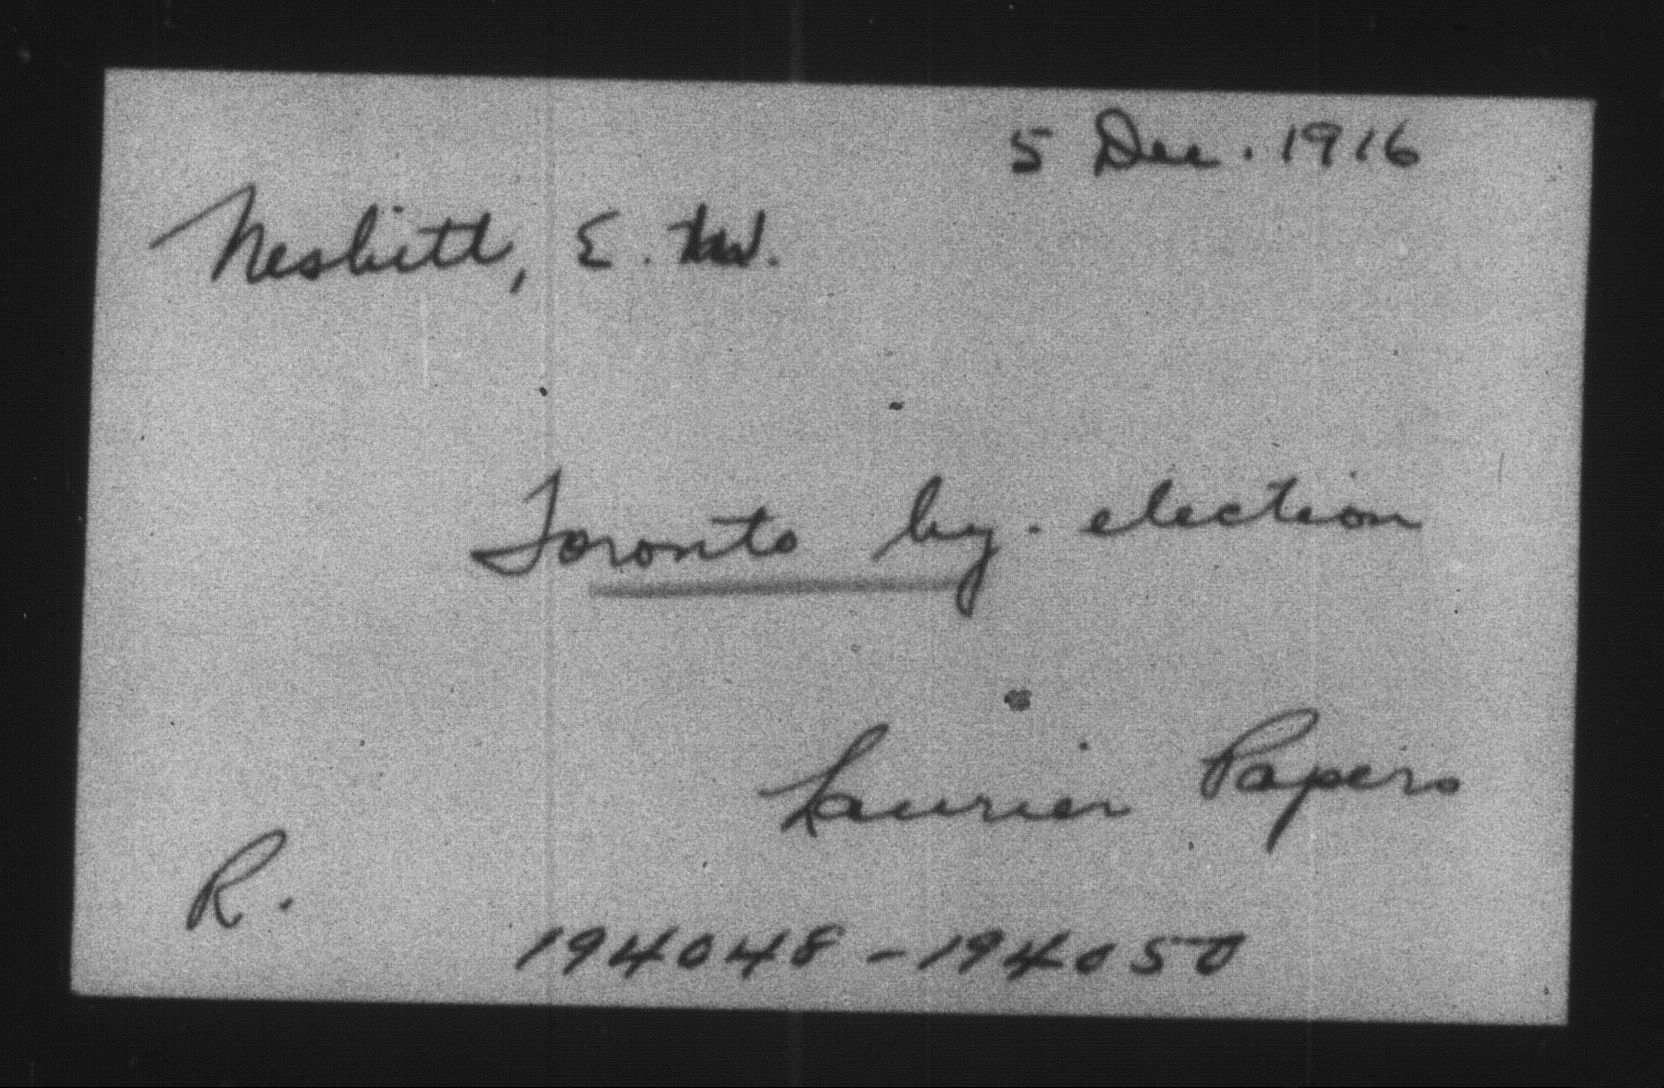 5 Dec. 1916
Nesbitt, E. W.
Toronto by-election
Laurier Papers
R.
194048-194050